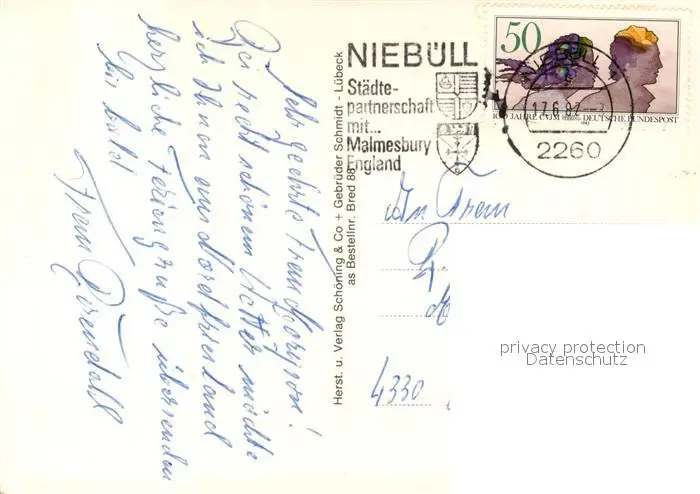 Sehr geehrte Frau Borgson!
Bei recht schönem Wetter möchte
ich Ihnen aus Nordfriesland
herzliche Feriengrüße übersenden
Bis bald!
Frau
Herst. u. Verlag Schöning & Co + Gebrüder Schmidt - Lübeck
as Bestellnr. Bred 88
NIEBÜLL
Städte-
partnerschaft
mit...
Malmesbury
England
50
JAHRE CVJM DEUTSCHE BUNDESPOST
NIEBÜLL
17.6.82
2260
An Frau
4330
privacy protection
Datenschutz